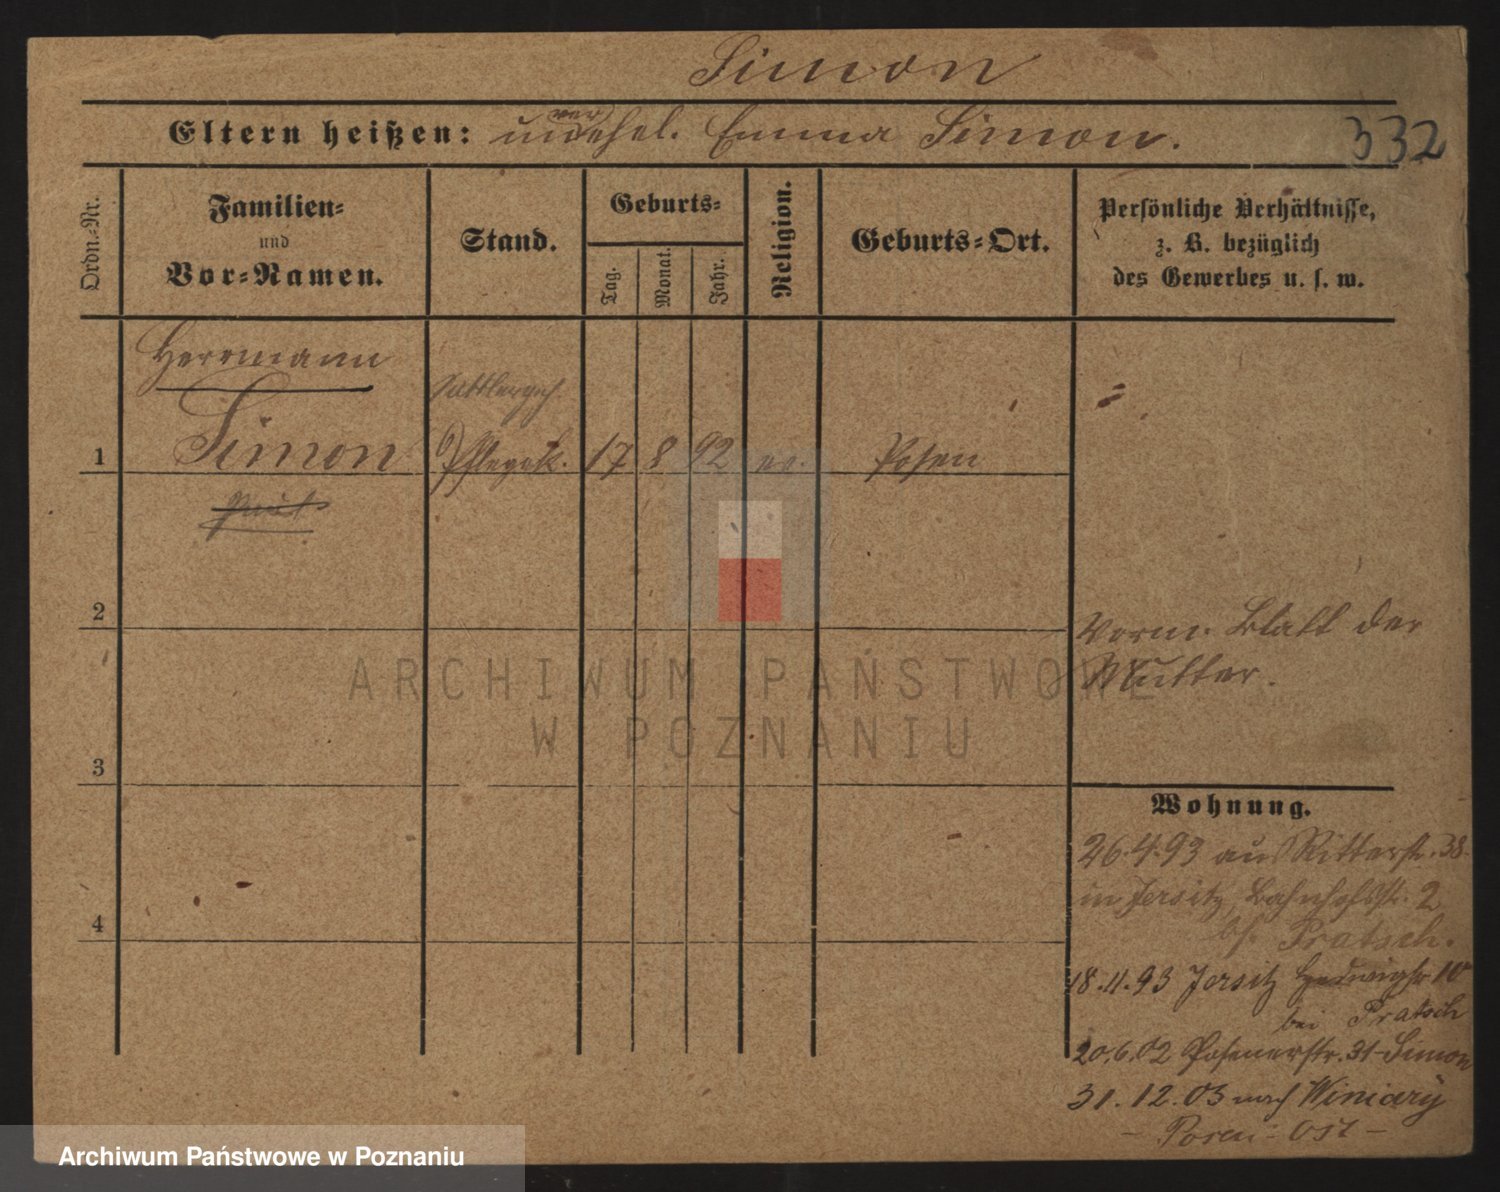 Simon
Eltern heißen: unverehel. Emma Simon.
332
Ordn.-Nr.
Familien-
und
Vor-Namen.
Stand.
Geburts-
Tag.
Monat.
Jahr.
Religion.
Geburts-Ort.
Persönliche Verhältnisse,
z. B. bezüglich
des Gewerbes u. s. w.
Herrmann
Sattlergeh.
1 Simon Pflegek. 17 8 92 ev. Posen
2
Vorm. Blatt der
Mutter.
ARCHIWUM PAŃSTWOWE
W POZNANIU
3
Wohnung.
26.4.93 aus Ritterstr. 38
in Jersitz, Bahnhofstr. 2
4
bei Pratsch.
18.11.93 Jersitz Hedwigstr 10
bei Pratsch
20.6.02 Posenerstr. 31 Simon
31.12.03 nach Winiary
- Posen-Ost -
Archiwum Państwowe w Poznaniu